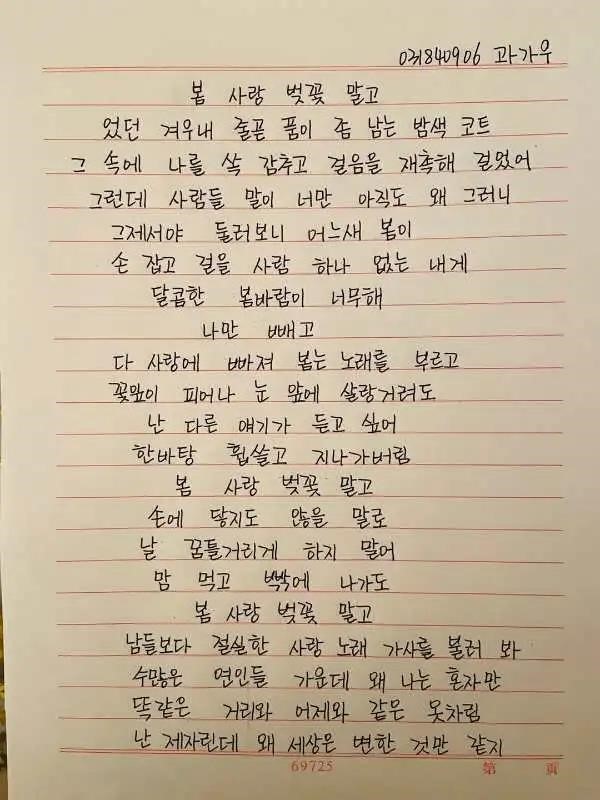 031840906 곽가우
봄 사랑 벚꽃 말고
었던 겨우내 줄곧 품이 좀 남는 밤색 코트
그 속에 나를 쏙 감추고 걸음을 재촉해 걸었어
그런데 사람들 말이 너만 아직도 왜 그러니
그제서야 둘러보니 어느새 봄이
손 잡고 걸을 사람 하나 없는 내게
달콤한 봄바람이 너무해
나만 빼고
다 사랑에 빠져 봄는 노래를 부르고
꽃잎이 피어나 눈 앞에 살랑거려도
난 다른 얘기가 듣고 싶어
한바탕 휩쓸고 지나가버림
봄 사랑 벚꽃 말고
손에 닿지도 않을 말로
날 꿈틀거리게 하지 말어
맘 먹고 빡에 나가도
봄 사랑 벚꽃 말고
남들보다 절실한 사랑 노래 가사를 불러 봐
수많은 연인들 가운데 왜 나는 혼자만
똑같은 거리와 어제와 같은 옷차림
난 제자린데 왜 세상은 변한 것만 같지
69725 第 頁